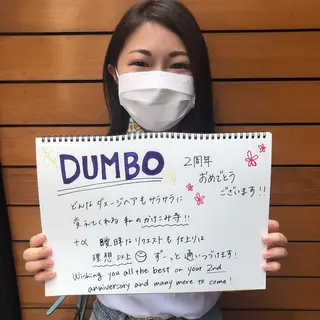 DUMBO
2周年
おめでとう
ございます!!
どんなダメージヘアもサラサラに
変えてくれる 私のかけこみ寺!!
+α 曖昧なリクエストも仕上りは
理想以上 ずーっと通いつづけます!
Wishing you all the best on your 2nd
anniversary and many more to come!